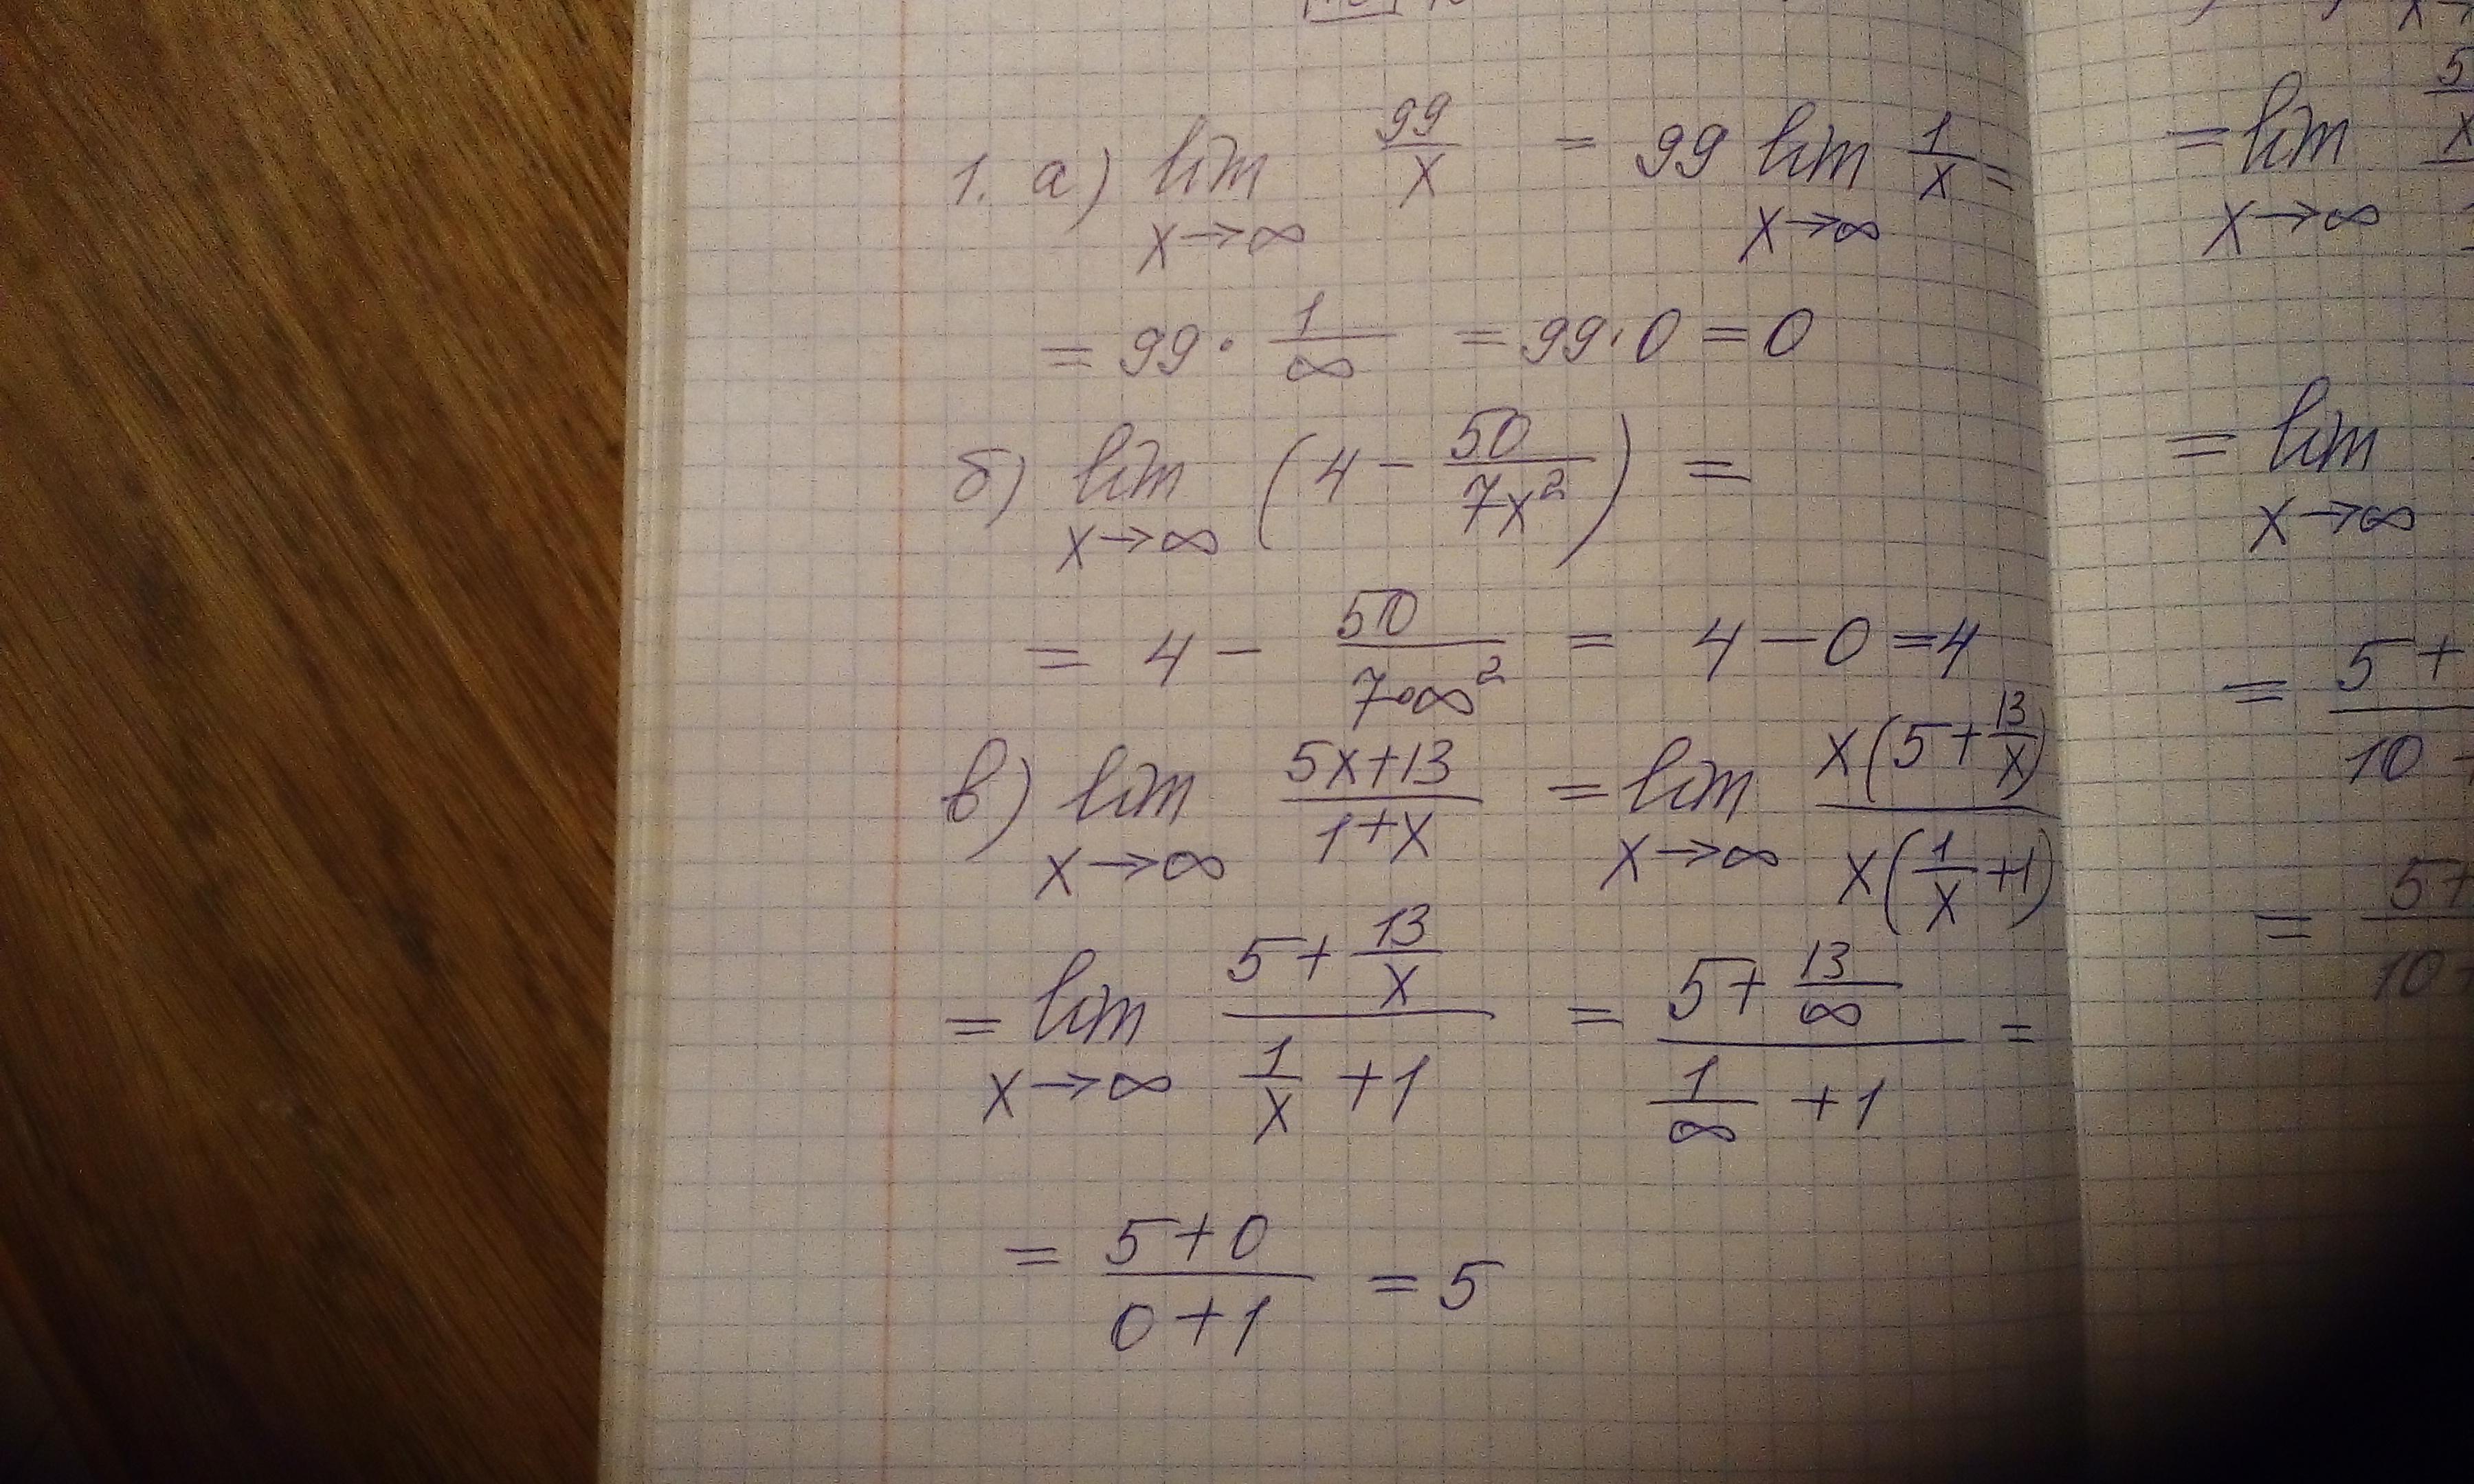 1. а) lim x→∞ 99/x = 99 lim x→∞ 1/x =
= 99 · 1/∞ = 99 · 0 = 0
б) lim x→∞ (4 - 50/7x²) =
= 4 - 50/7·∞² = 4 - 0 = 4
в) lim x→∞ 5x+13/1+x = lim x→∞ x(5+13/x)/x(1/x+1)
= lim x→∞ 5+13/x / 1/x+1 = 5+13/∞ / 1/∞+1 =
= 5+0/0+1 = 5
= lim x→∞ 5/x
= lim x→∞
= 5+/10+
= 5+/10+